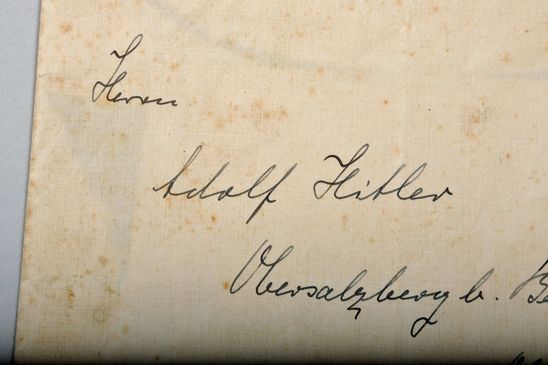 Herrn
Adolf Hitler
Obersalzberg b.